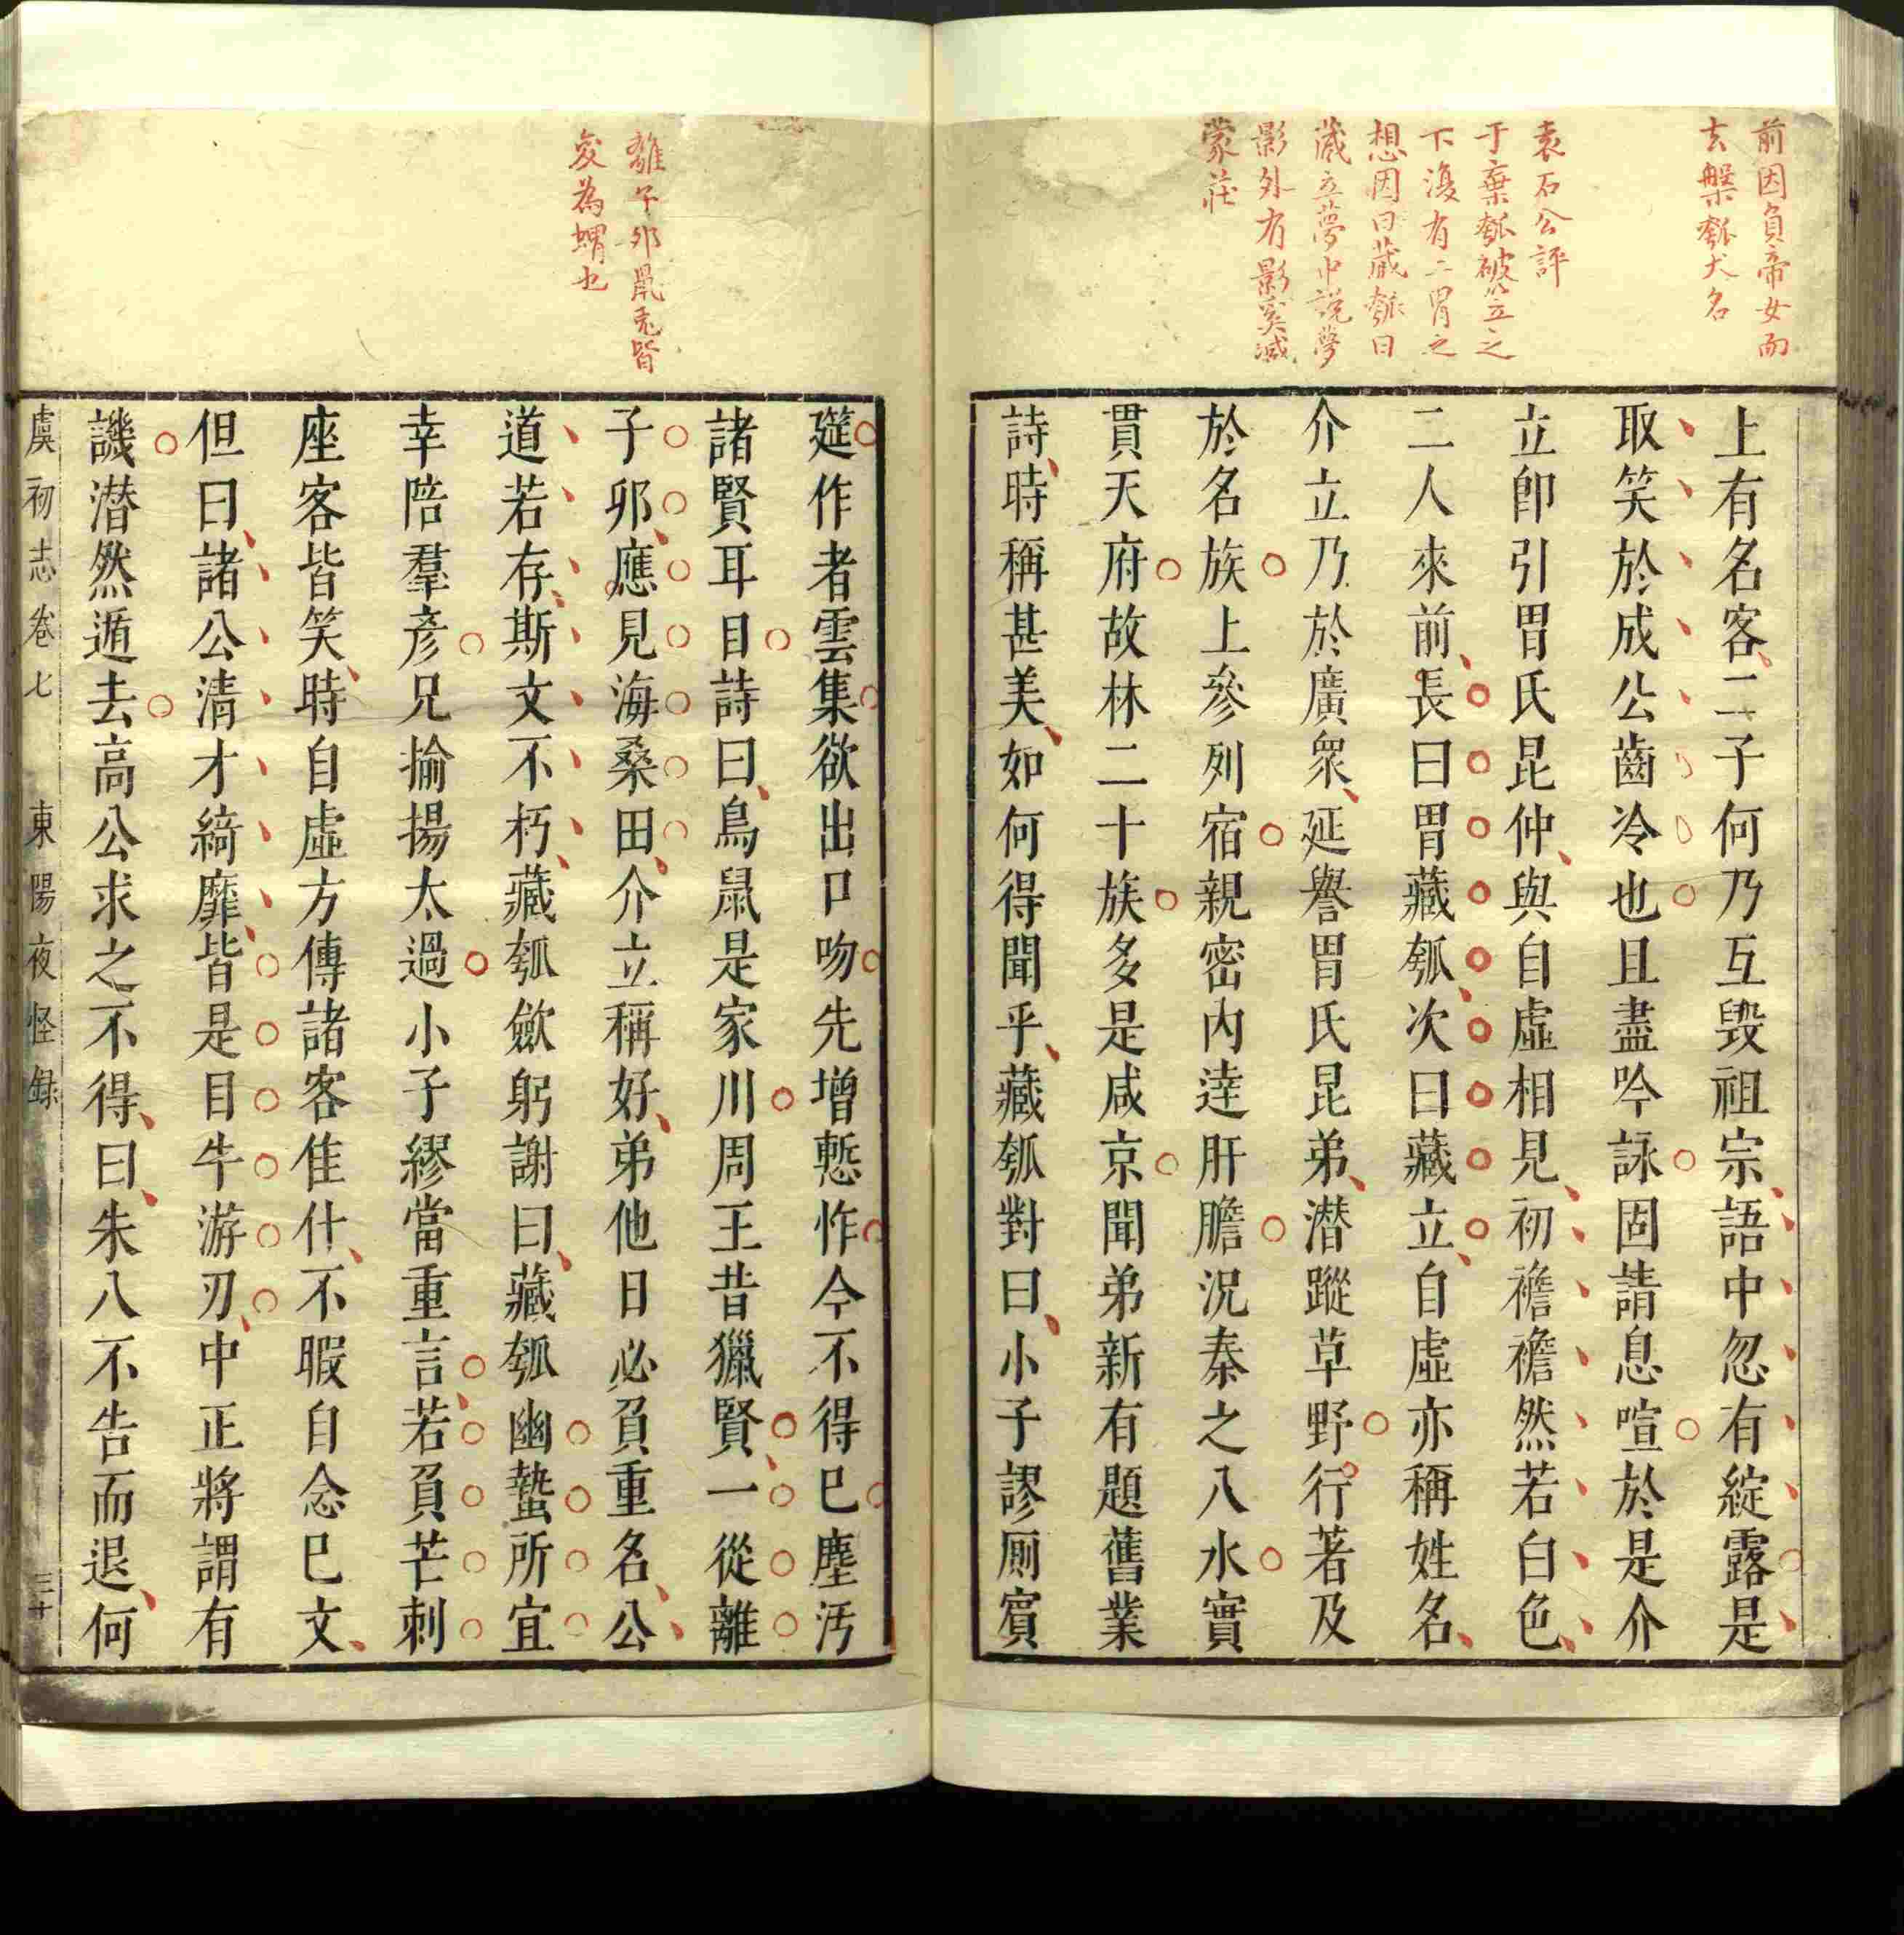 前因負帝女而
去槃瓠犬名
袁石公評
于棄瓠破笠之
下復有二胃之
想因曰藏瓠曰
藏立夢中說夢
影外有影奚減
蒙莊
上有名客二子何乃互毀祖宗語中忽有綻露是
取笑於成公齒冷也且盡吟詠固請息喧於是介
立卽引胃氏昆仲與自虛相見初襜襜然若白色
二人來前長曰胃藏瓠次曰藏立自虛亦稱姓名
介立乃於廣衆延譽胃氏昆弟潜蹤草野行著及
於名族上參列宿親密內達肝膽況秦之八水實
貫天府故林二十族多是咸京聞弟新有題舊業
詩時稱甚美如何得聞乎藏瓠對曰小子謬厠賓
筵作者雲集欲出口吻先增慙怍今不得巳塵汚
諸賢耳目詩曰鳥鼠是家川周王昔獵賢一從離
子卯應見海桑田介立稱好弟他日必負重名公
道若存斯文不朽藏瓠歛躬謝曰藏瓠幽蟄所宜
幸陪羣彥兄揄揚太過小子繆當重言若負芒刺
座客皆笑時自虛方傳諸客隹什不暇自念巳文
但曰諸公清才綺靡皆是目牛游刃中正將謂有
譏潜然遁去高公求之不得曰朱八不告而退何
離子卯鼠兎皆
変為蝟也
虞初志卷七 東陽夜怪録 三十